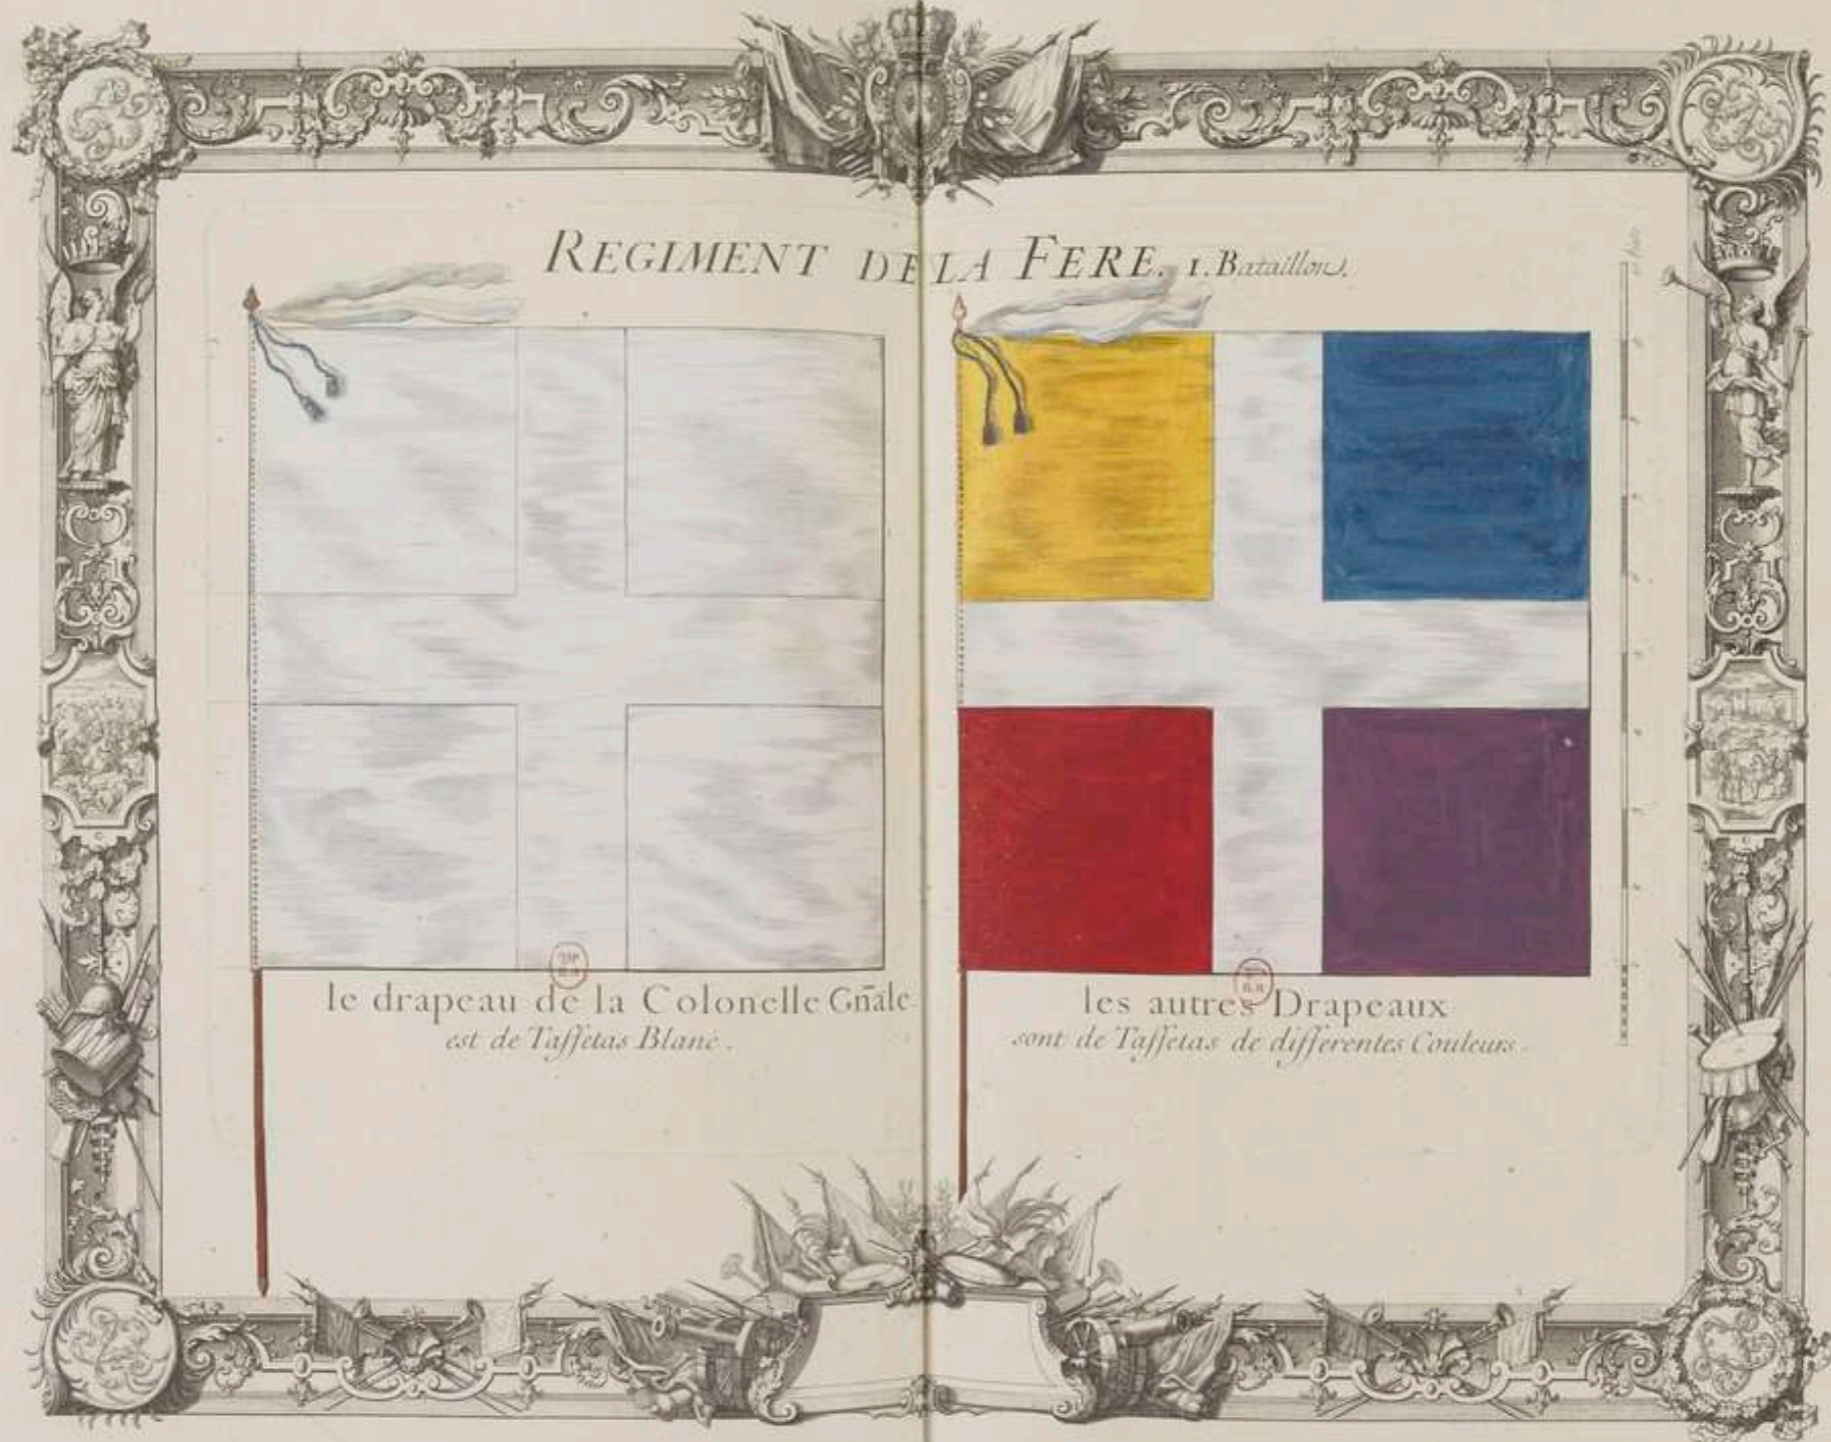 REGIMENT DE LA FERE. 1. Bataillon.
le drapeau de la Colonelle Gñale
est de Taffetas Blanc.
les autres Drapeaux
sont de Taffetas de differentes Couleurs.